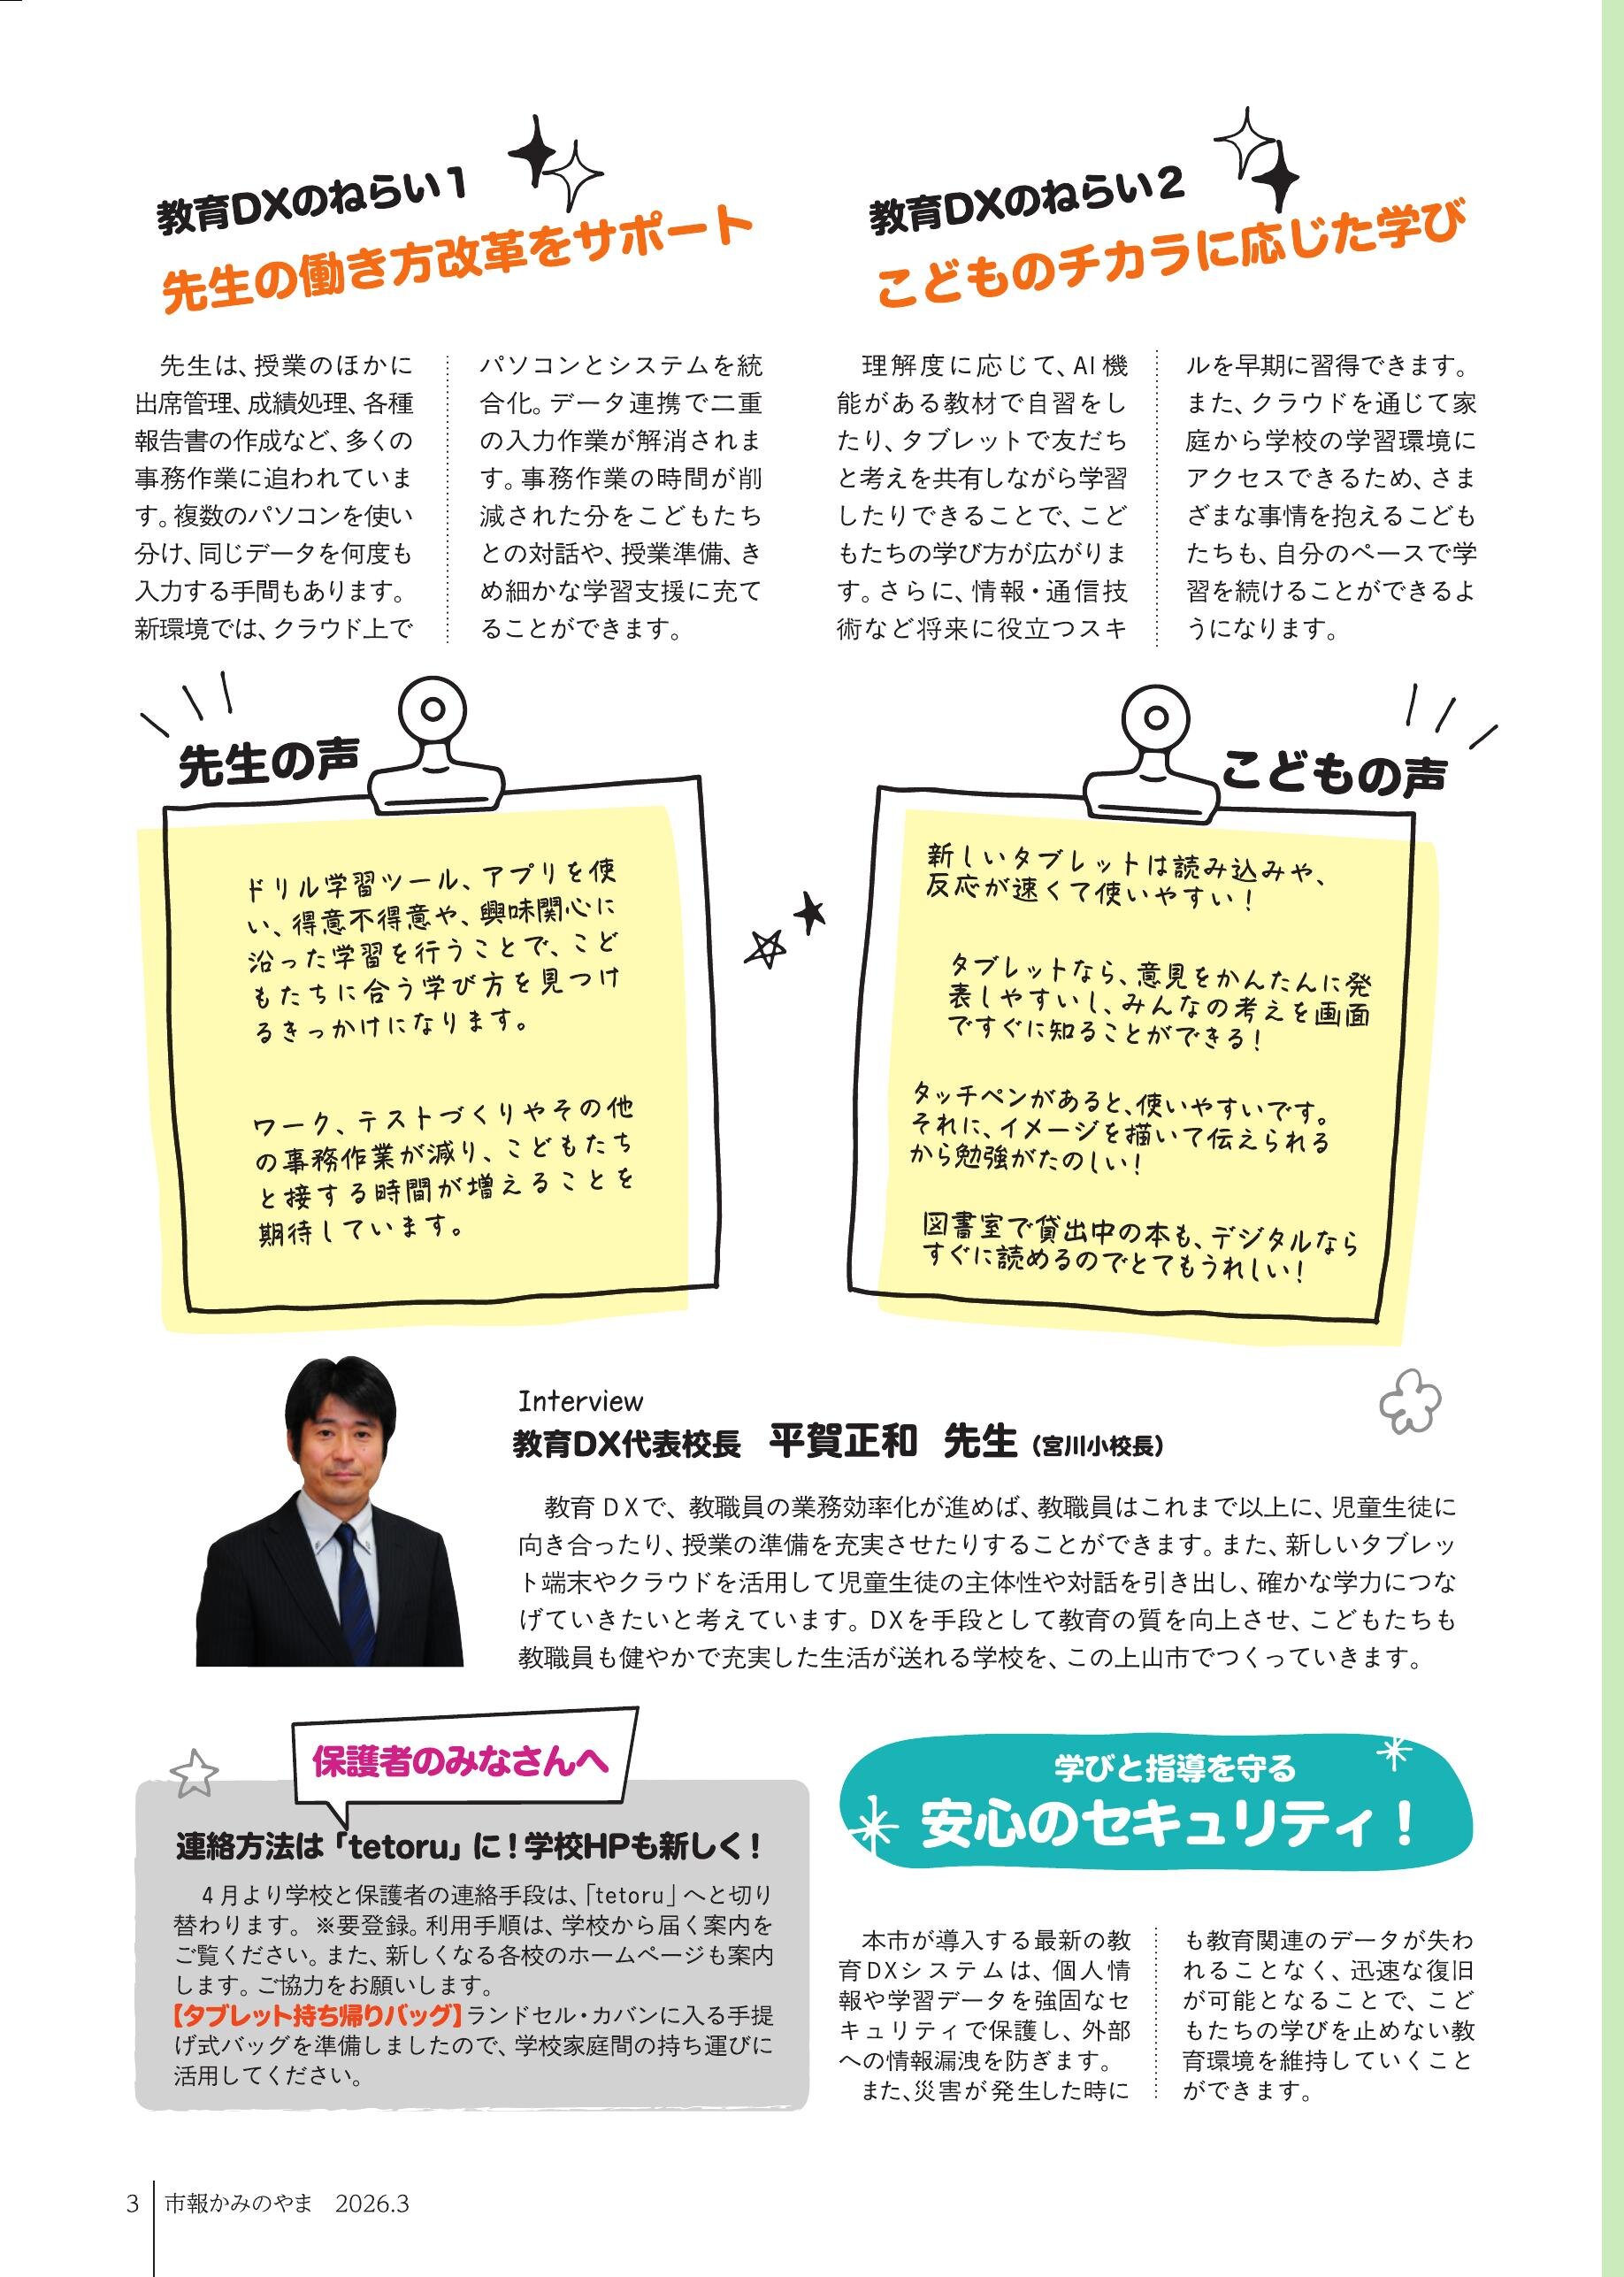 教育DXのねらい1
先生の働き方改革をサポート
先生は、授業のほかに
出席管理、成績処理、各種
報告書の作成など、多くの
事務作業に追われていま
す。複数のパソコンを使い
分け、同じデータを何度も
入力する手間もあります。
新環境では、クラウド上で
パソコンとシステムを統
合化。データ連携で二重
の入力作業が解消されま
す。事務作業の時間が削
減された分をこどもたち
との対話や、授業準備、き
め細かな学習支援に充て
ることができます。
教育DXのねらい2
こどものチカラに応じた学び
理解度に応じて、AI機
能がある教材で自習をし
たり、タブレットで友だち
と考えを共有しながら学習
したりできることで、こど
もたちの学び方が広がりま
す。さらに、情報・通信技
術など将来に役立つスキ
ルを早期に習得できます。
また、クラウドを通じて家
庭から学校の学習環境に
アクセスできるため、さま
ざまな事情を抱えるこども
たちも、自分のペースで学
習を続けることができるよ
うになります。
先生の声
ドリル学習ツール、アプリを使
い、得意不得意や、興味関心に
沿った学習を行うことで、こど
もたちに合う学び方を見つけ
るきっかけになります。
ワーク、テストづくりやその他
の事務作業が減り、こどもたち
と接する時間が増えることを
期待しています。
こどもの声
新しいタブレットは読み込みや、
反応が速くて使いやすい！
タブレットなら、意見をかんたんに発
表しやすいし、みんなの考えを画面
ですぐに知ることができる！
タッチペンがあると、使いやすいです。
それに、イメージを描いて伝えられる
から勉強がたのしい！
図書室で貸出中の本も、デジタルなら
すぐに読めるのでとてもうれしい！
Interview
教育DX代表校長 平賀正和 先生（宮川小校長）
教育DXで、教職員の業務効率化が進めば、教職員はこれまで以上に、児童生徒に
向き合ったり、授業の準備を充実させたりすることができます。また、新しいタブレッ
ト端末やクラウドを活用して児童生徒の主体性や対話を引き出し、確かな学力につな
げていきたいと考えています。DXを手段として教育の質を向上させ、こどもたちも
教職員も健やかで充実した生活が送れる学校を、この上山市でつくっていきます。
保護者のみなさんへ
連絡方法は「tetoru」に！学校HPも新しく！
4月より学校と保護者の連絡手段は、「tetoru」へと切り
替わります。※要登録。利用手順は、学校から届く案内を
ご覧ください。また、新しくなる各校のホームページも案内
します。ご協力をお願いします。
【タブレット持ち帰りバッグ】ランドセル・カバンに入る手提
げ式バッグを準備しましたので、学校家庭間の持ち運びに
活用してください。
学びと指導を守る
安心のセキュリティ！
本市が導入する最新の教
育DXシステムは、個人情
報や学習データを強固なセ
キュリティで保護し、外部
への情報漏洩を防ぎます。
また、災害が発生した時に
も教育関連のデータが失わ
れることなく、迅速な復旧
が可能となることで、こど
もたちの学びを止めない教
育環境を維持していくこと
ができます。
3 市報かみのやま 2026.3